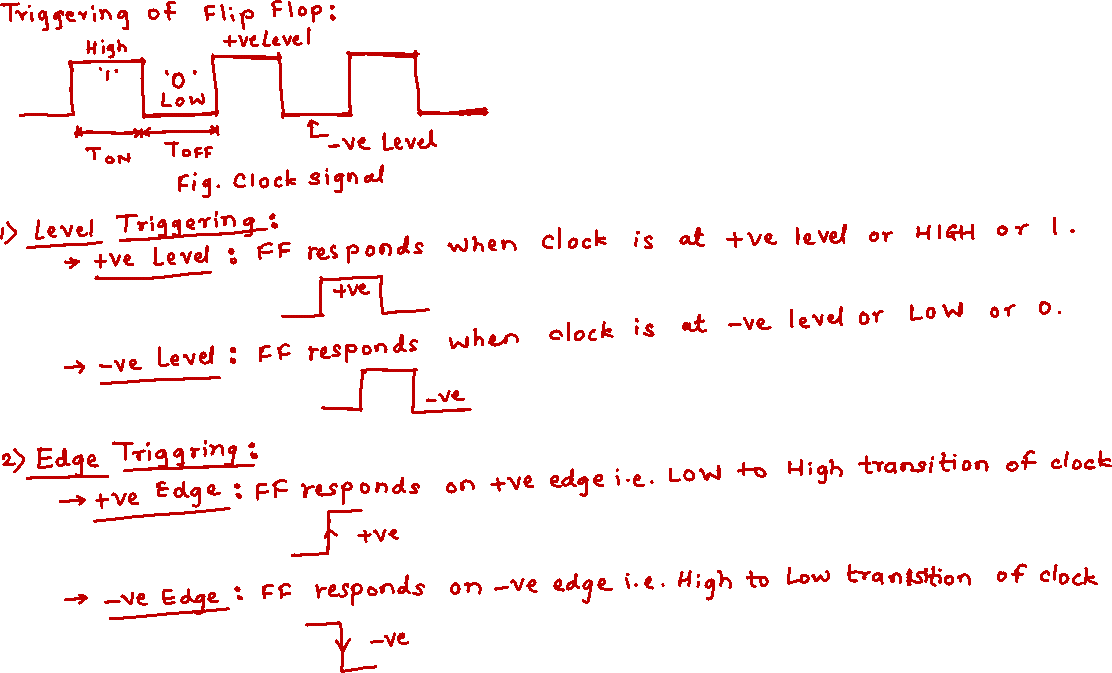 Triggering of Flip Flop:
High
+ve Level
'1'
'0'
Low
-ve Level
TON
TOFF
Fig. Clock signal
1) Level Triggering:
→ +ve Level : FF responds when clock is at +ve level or HIGH or 1.
+ve
→ -ve Level : FF responds when clock is at -ve level or LOW or 0.
-ve
2) Edge Triggring:
→ +ve Edge : FF responds on +ve edge i.e. LOW to High transition of clock
+ve
→ -ve Edge : FF responds on -ve edge i.e. High to Low transition of clock
-ve